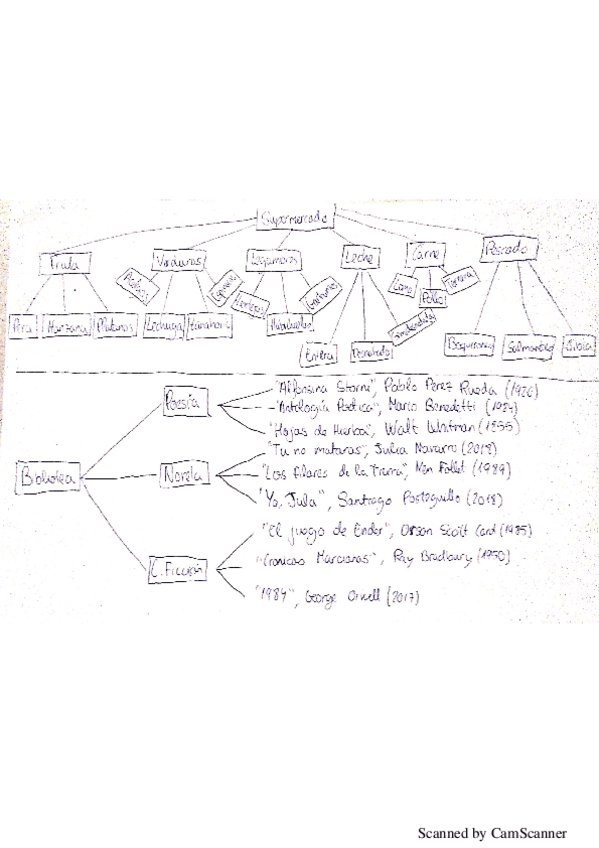 Supermercado
Fruta Verduras Legumbres Leche Carne Pescado
Pera Manzana Platanos Lechuga Lentejas Garbanzos Pollo Ternera
Entera Boquerones Salmonetes
Poesía
"Alfonsina Storni", Pablo Perez Rueda (1926)
"Antología Poética", Mario Benedetti (1984)
"Hojas de Hierba", Walt Whitman (1855)
Biblioteca
Novela
"Tu no mataras", Julia Navarro (2018)
"Los pilares de la Tierra", Ken Follet (1989)
"Yo, Julia", Santiago Posteguillo (2018)
C. Ficción
"El juego de Ender", Orson Scott Card (1985)
"Cronicas Marcianas", Ray Bradbury (1950)
"1984", George Orwell (2017)
Scanned by CamScanner